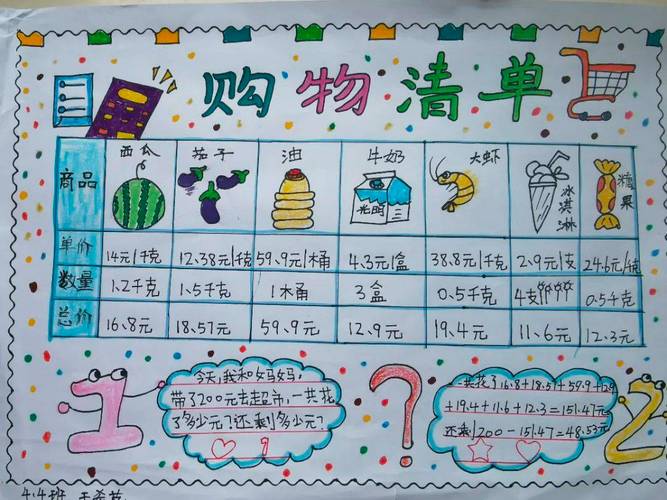 购物清单
商品 西瓜 茄子 油 牛奶 大虾 冰淇淋 糖果
光明
单价 14元/千克 12.38元/千克 59.9元/桶 4.3元/盒 38.8元/千克 2.9元/支 24.6元/千克
数量 1.2千克 1.5千克 1桶 3盒 0.5千克 4支 0.5千克
总价 16.8元 18.57元 59.9元 12.9元 19.4元 11.6元 12.3元
今天,我和妈妈
带了200元去超市,一共花
了多少元?还剩多少元?
?
一共花了16.8+18.57+59.9+12.9
+19.4+11.6+12.3=151.47元
还剩200-151.47=48.53元
1
2
4.4班